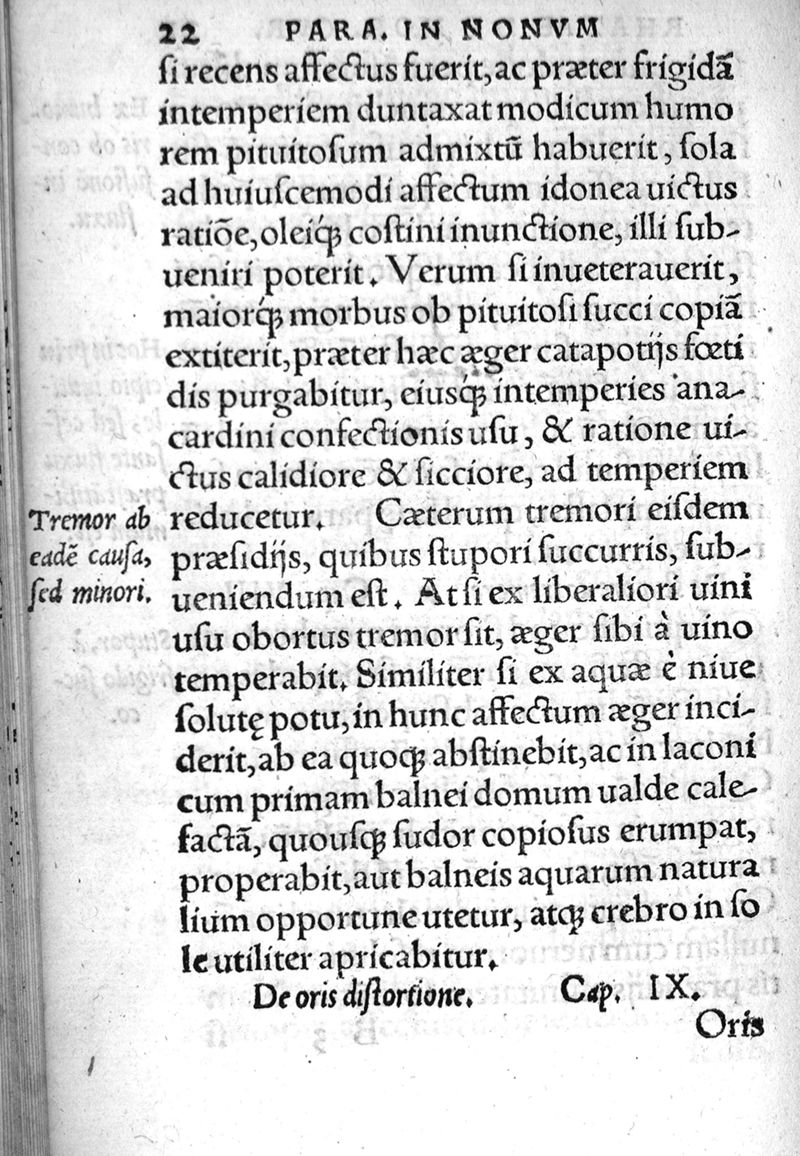 22 PARA. IN NONVM
ſi recens affectus fuerit, ac præter frigidā
intemperiem duntaxat modicum humo
rem pituitoſum admixtū habuerit, ſola
ad huiuſcemodi affectum idonea uictus
ratiōe, oleiq́ꝫ coſtini inunctione, illi ſub-
ueniri poterit. Verum ſi inueterauerit,
maiorq́ꝫ morbus ob pituitoſi ſucci copiā
extiterit, præter hæc æger catapotijs fœti
dis purgabitur, eiusq́ꝫ intemperies ana-
cardini confectionis uſu, & ratione ui-
ctus calidiore & ſicciore, ad temperiem
reducetur. Cæterum tremori eiſdem
præſidijs, quibus ſtupori ſuccurris, ſub-
ueniendum eſt. At ſi ex liberaliori uini
uſu obortus tremor ſit, æger ſibi à uino
temperabit. Similiter ſi ex aquæ è niue
ſolutę potu, in hunc affectum æger inci-
derit, ab ea quoqꝫ abſtinebit, ac in laconi
cum primam balnei domum ualde cale-
factā, quouſqꝫ ſudor copioſus erumpat,
properabit, aut balneis aquarum natura
lium opportune utetur, atqꝫ crebro in ſo
le utiliter apricabitur.
Tremor ab
eadē cauſa,
ſed minori.
De oris diſtortione. Cap. IX.
Oris